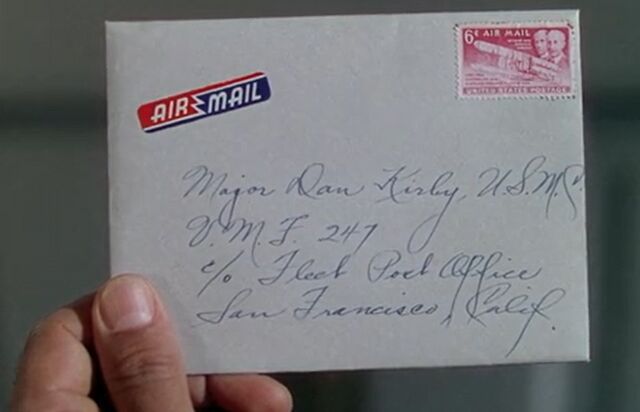 6¢ AIR MAIL
UNITED STATES POSTAGE
AIR MAIL
Major Dan Kirby, U.S.M.C.
V.M.F. 247
c/o Fleet Post Office
San Francisco, Calif.